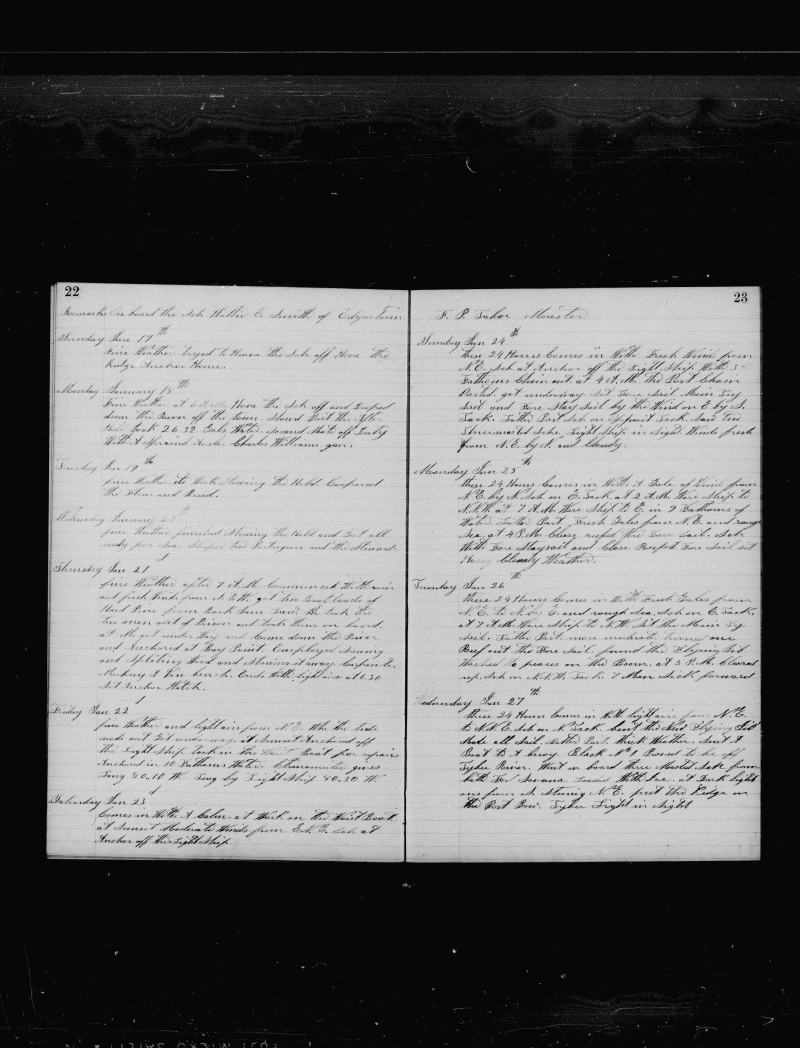 22
Remarks on board the Sch Hattie E. Smith of Edgartown
Sunday Jan 17th
Fine Weather tryed to Heave the Sch off Hove the
Kedge Anchor Home.
Monday January 18th
Fine Weather at 6 A.M. Hove the Sch off and Droped
down the River off the Town.
Took 2632 Gals Water. Second Mate off Duty
With A Sprained Ancle. Charles Williams gon.
Tuesday Jan 19th
fine Weather at Work Stowing the Hold.
the Flour and Bread.
Wednesday January 20th
fine Weather finished Stowing the Hold and Got all
ready for Sea. Shiped two Portugues and the Steward.
Thursday Jan 21
fine Weather after 7 A.M. Commenced With rain
and fresh Winds from got two Boat loads of
Hard Pine from Bark He took the
two men out of Prison and took them on board.
at M. got under Way and Came down the River
and Anchored at Bay Point. Employed Sawing
and Spliting Wood and Stowing it away. Carpenter
Making A Vice bench. Ends With light airs at 6.30
Set Anchor Watch.
Friday Jan 22
fine Weather and light airs from N.E. Whe the tide
made out Got under way. at Sunset Anchored off
the Light Ship. Took in the Waist Boat for repairs
Anchored in 10 Fathoms Water. Chronometer gives
Long 80.10 W Long by Light Ship 80.30 W
Saturday Jan 23
Comes in With A Calm. at Work on the Waist Boat.
at Sunset Moderate Winds from E.N.E. Sch at
Anchor off the Light Ship.
23
F. P. Tabor Master
Sunday Jan 24th
these 24 Hours Comes in With Fresh Wind from
N.E. Sch at Anchor off the Light Ship With
Fathoms Chain out. at 4 A.M. The Port Chain
Parted got underway. Set Fore Sail Main Try
Sail and Fore Stay Sail by the Wind on E by S.
Tack. Latter Part Sch on Opposit Tack. Saw two
Three masted Schs. Light Ship in Sight. Winds fresh
from N.E. by N. and Cloudy.
Monday Jan 25th
these 24 Hours Comes in With A Gale of Wind from
N.E. by N. Sch on E. Tack. at 2 A.M. Ware Ship to
N.N.W. at 7 A.M. Ware Ship to E. in 9 Fathoms of
Water. Latter Part Fresh Gales from N.E. and rough
Sea. at 4 P.M. Close reefed the Fore Sail. Sch
With Fore Staysail and Close Reefed Fore Sail Set
Cloudy Weather.
Tuesday Jan 26th
these 24 Hours Comes in With Fresh Gales from
N.E. to N. by E. and rough Sea. Sch on E. Tack.
at 7 A.M. Ware Ship to N.W. Set the Main Try
Sail. Latter Part more moderate turned one
Reef out the Fore Sail. found the Flying Jib
Washed to peaces on the Boom. at 3 P.M. Cleared
up. Sch on N.N.W. Tack. 7 Men Sick forward
Wednesday Jan 27th
these 24 Hours Comes in With light airs from N.E.
to N.N.E. Sch on N. Tack. bent the New Flying Jib
Made all Sail. Latter Part thick Weather. Sent A
Boat to A buoy. Black No 1 Proved to be off
Tybee River. Went on board three Masted Sch from
Bath For Savana Loaded With Ice. at Dark light
airs from N. Stering N.E. past the Ridge on
the Port Bow. Tybee Light in Sight